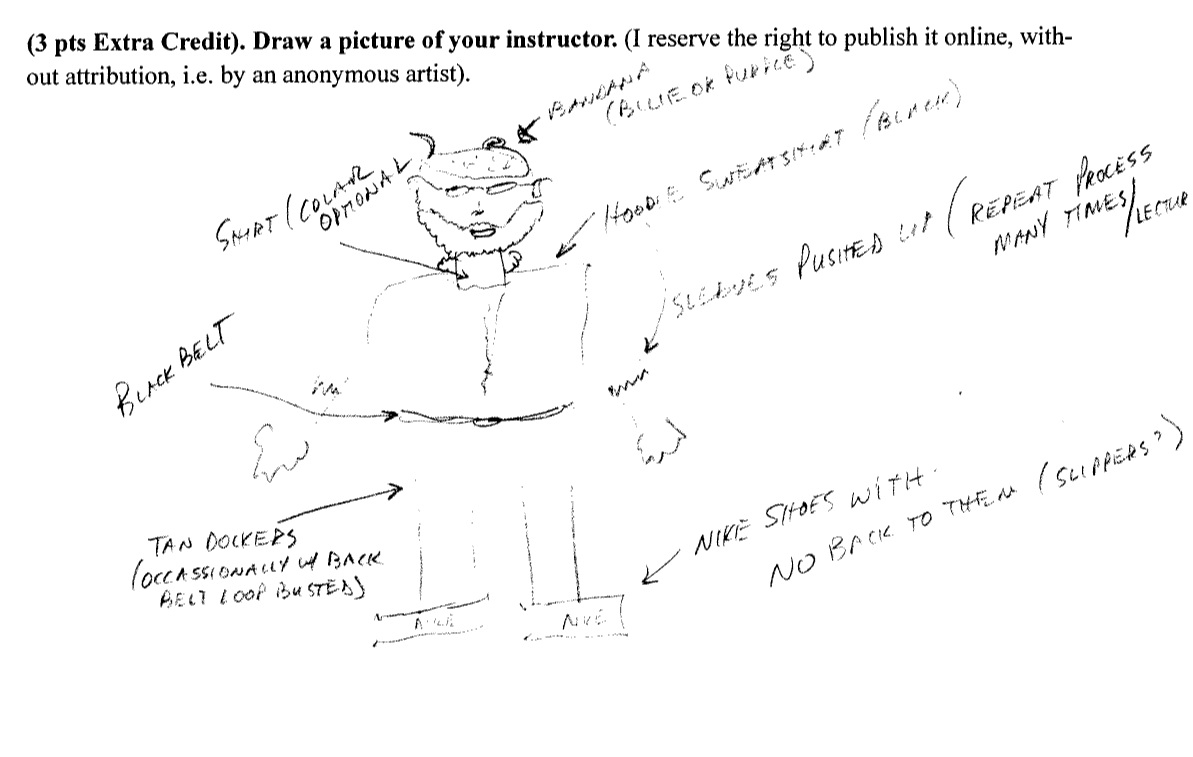 (3 pts Extra Credit). Draw a picture of your instructor. (I reserve the right to publish it online, with-
out attribution, i.e. by an anonymous artist).
BANDANA
(BLUE OR PURPLE)
SHIRT (COLAR
OPTIONAL)
HOODIE SWEATSHIRT (BLACK)
SLEEVES PUSHED UP (REPEAT PROCESS
MANY TIMES/LECTUR
BLACK BELT
TAN DOCKERS
(OCCASSIONALLY W/ BACK
BELT LOOP BUSTED)
NIKE SHOES WITH
NO BACK TO THEM (SLIPPERS?)
NIKE
NIKE